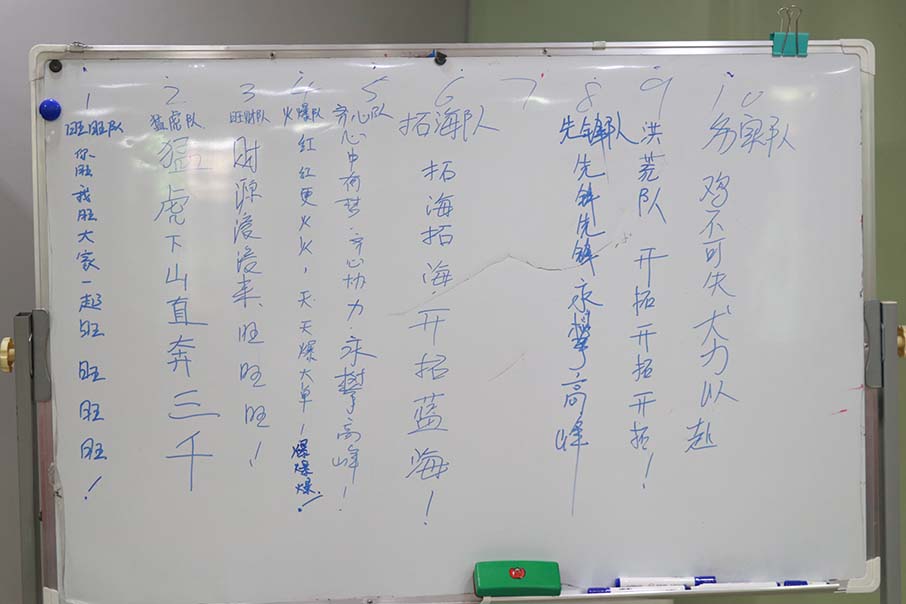 1
旺旺队
你旺我旺大家一起旺旺旺旺！
2
猛虎队
猛虎下山直奔三千
3
旺财队
财源滚滚来旺旺旺！
4
火爆队
红红更火火，天天爆大单！爆爆爆！
5
齐心队
心中有梦.齐心协力.永攀高峰！
6
拓海队
拓海拓海开拓蓝海！
7
8
先锋队
先锋先锋永攀高峰
9
洪荒队
开拓开拓开拓！
10
实队
鸡不可失犬力以赴